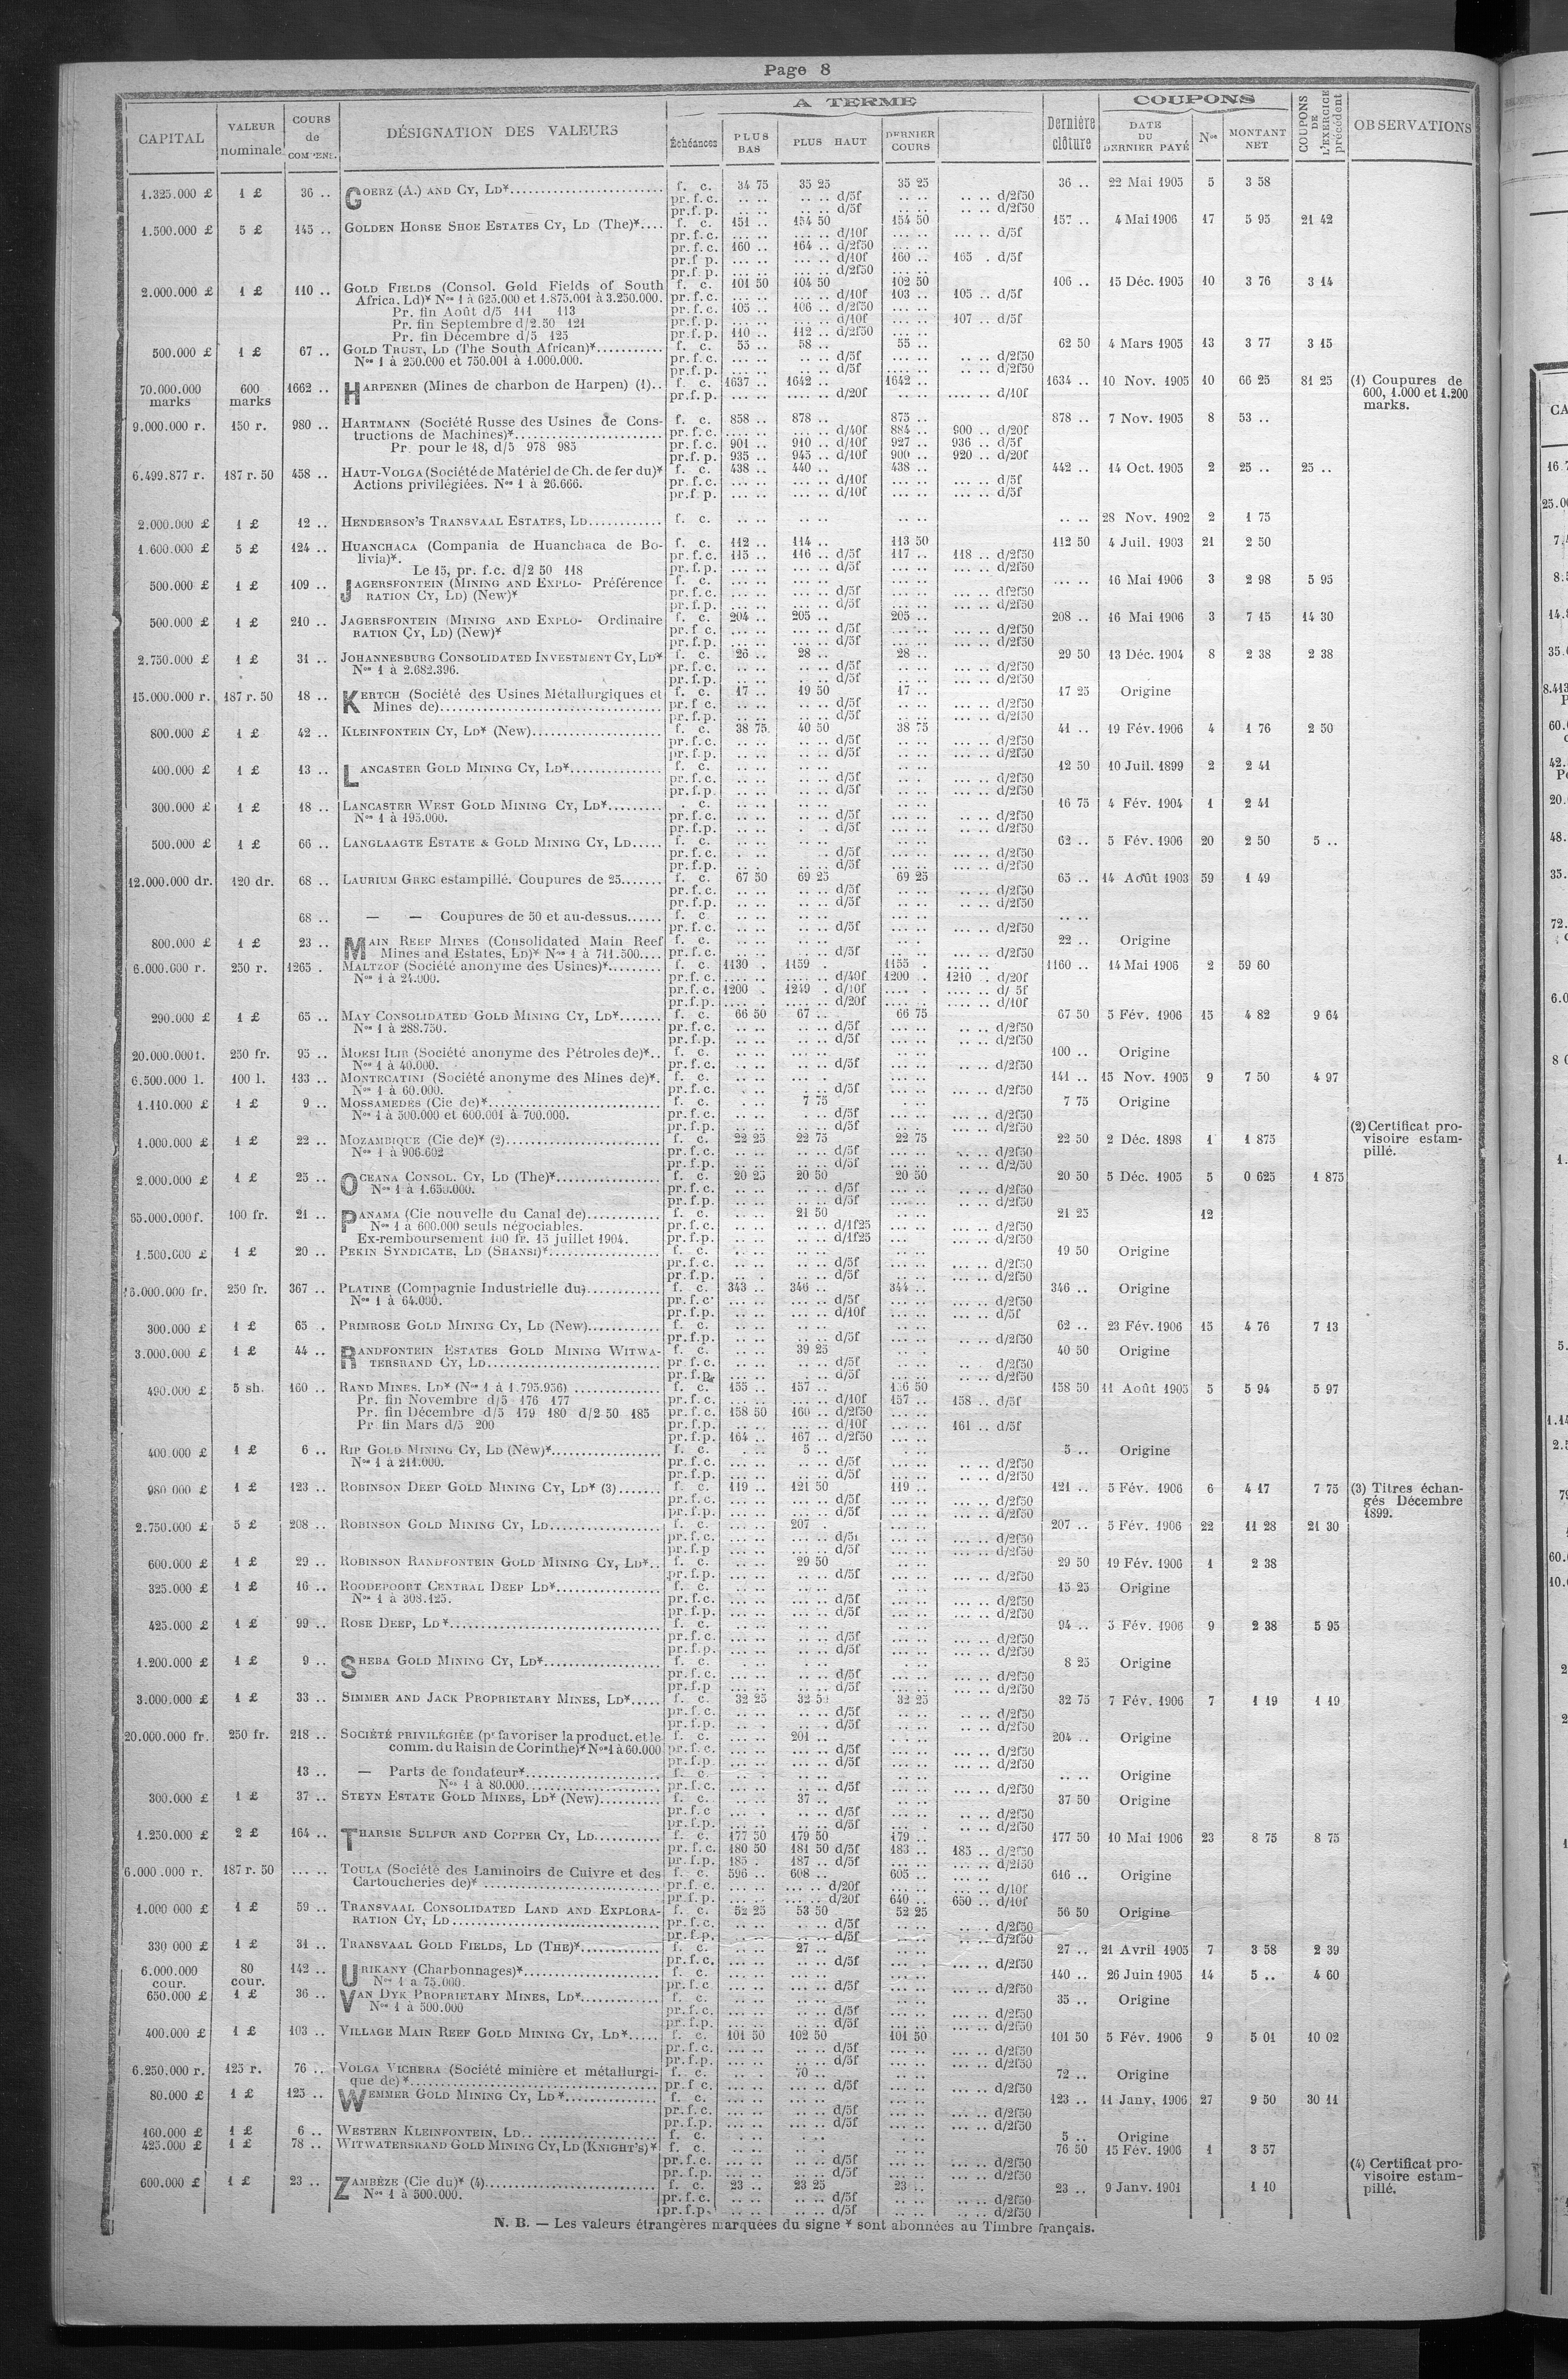 Page 8
CAPITAL VALEUR nominale COURS de COMPENS. DÉSIGNATION DES VALEURS A TERME Échéances PLUS BAS PLUS HAUT DERNIER COURS Dernière clôture COUPONS DATE DU DERNIER PAYÉ Nos MONTANT NET COUPONS DE L'EXERCICE précédent OBSERVATIONS
1.325.000 £ 1 £ 36 .. GOERZ (A.) AND CY, LD*.... f. c. 34 75 35 25 35 25 36 .. 22 Mai 1905 5 3 58
pr. f. c. .. .. .. .. d/5f .. .. .. .. d/2f50
pr. f. p. .. .. .. .. d/5f .. .. .. .. d/2f50
1.500.000 £ 5 £ 145 .. GOLDEN HORSE SHOE ESTATES CY, LD (The)*.... f. c. 151 .. 154 50 154 50 157 .. 4 Mai 1906 17 5 95 21 42
pr. f. c. ... .. ... .. d/10f ... .. ... .. d/5f
pr. f. c. 160 .. 164 .. d/2f50 ... ..
pr. f. p. ... .. ... .. d/10f 160 .. 165 . d/5f
pr. f. p. ... .. ... .. d/2f50 ... ..
2.000.000 £ 1 £ 110 .. GOLD FIELDS (Consol. Gold Fields of South f. c. 101 50 104 50 102 50 106 .. 15 Déc. 1905 10 3 76 3 14
Africa, Ld)* Nos 1 à 625.000 et 1.875.001 à 3.250.000. pr. f. c. ... .. ... .. d/10f 103 .. 105 .. d/5f
Pr. fin Août d/5 111 113 pr. f. c. 105 .. 106 .. d/2f50 ... ..
Pr. fin Septembre d/2.50 121 pr. f. p. ... .. ... .. d/10f ... .. 107 .. d/5f
Pr. fin Décembre d/5 125 pr. f. p. 110 .. 112 .. d/2f50 ... ..
500.000 £ 1 £ 67 .. GOLD TRUST, LD (The South African)*.... f. c. 55 .. 58 .. 55 .. 62 50 4 Mars 1905 13 3 77 3 15
Nos 1 à 250.000 et 750.001 à 1.000.000. pr. f. c. .. .. .. .. d/5f .. .. .. .. d/2f50
pr. f. p. .. .. .. .. d/5f .. .. .. .. d/2f50
70.000.000 marks 600 marks 1662 .. HARPENER (Mines de charbon de Harpen) (1).. f. c. 1637 .. 1642 .. 1642 .. 1634 .. 10 Nov. 1905 10 66 25 81 25 (1) Coupures de
pr. f. p. .... .. .... .. d/20f .... .. .... .. d/10f 600, 1.000 et 1.200
marks.
9.000.000 r. 150 r. 980 .. HARTMANN (Société Russe des Usines de Cons- f. c. 858 .. 878 .. 875 .. 878 .. 7 Nov. 1905 8 53 ..
tructions de Machines)*.... pr. f. c. ... .. ... .. d/40f 884 .. 900 .. d/20f
Pr. pour le 18, d/5 978 985 pr. f. c. 901 .. 910 .. d/10f 927 .. 936 .. d/5f
pr. f. p. 935 .. 945 .. d/10f 900 .. 920 .. d/20f
6.499.877 r. 187 r. 50 458 .. HAUT-VOLGA (Société de Matériel de Ch. de fer du)* f. c. 438 .. 440 .. 438 .. 442 .. 14 Oct. 1905 2 25 .. 25 ..
Actions privilégiées. Nos 1 à 26.666. pr. f. c. ... .. ... .. d/10f ... .. ... .. d/5f
pr. f. p. ... .. ... .. d/10f ... .. ... .. d/5f
2.000.000 £ 1 £ 12 .. HENDERSON'S TRANSVAAL ESTATES, LD.... f. c. .. .. .. .. .. .. .. .. 28 Nov. 1902 2 1 75
1.600.000 £ 5 £ 124 .. HUANCHACA (Compania de Huanchaca de Bo- f. c. 112 .. 114 .. 113 50 112 50 4 Juil. 1903 21 2 50
livia)*. pr. f. c. 115 .. 116 .. d/5f 117 .. 118 .. d/2f50
Le 15, pr. f.c. d/2 50 118 pr. f. p. ... .. ... .. d/5f ... .. ... .. d/2f50
500.000 £ 1 £ 109 .. JAGERSFONTEIN (MINING AND EXPLO- Préférence f. c. ... .. ... .. ... .. ... .. 16 Mai 1906 3 2 98 5 95
RATION CY, LD) (New)* pr. f. c. ... .. ... .. d/5f ... .. ... .. d/2f50
pr. f. p. ... .. ... .. d/5f ... .. ... .. d/2f50
500.000 £ 1 £ 210 .. JAGERSFONTEIN (MINING AND EXPLO- Ordinaire f. c. 204 .. 205 .. 205 .. 208 .. 16 Mai 1906 3 7 15 14 30
RATION CY, LD) (New)* pr. f. c. ... .. ... .. d/5f ... .. ... .. d/2f50
pr. f. p. ... .. ... .. d/5f ... .. ... .. d/2f50
2.750.000 £ 1 £ 31 .. JOHANNESBURG CONSOLIDATED INVESTMENT CY, LD* f. c. 26 .. 28 .. 28 .. 29 50 13 Déc. 1904 8 2 38 2 38
Nos 1 à 2.682.396. pr. f. c. .. .. .. .. d/5f .. .. .. .. d/2f50
pr. f. p. .. .. .. .. d/5f .. .. .. .. d/2f50
15.000.000 r. 187 r. 50 18 .. KERTCH (Société des Usines Métallurgiques et f. c. 17 .. 19 50 17 .. 17 25 Origine
Mines de).... pr. f. c. .. .. .. .. d/5f .. .. .. .. d/2f50
pr. f. p. .. .. .. .. d/5f .. .. .. .. d/2f50
800.000 £ 1 £ 42 .. KLEINFONTEIN CY, LD* (New).... f. c. 38 75 40 50 38 75 41 .. 19 Fév. 1906 4 1 76 2 50
pr. f. c. .. .. .. .. d/5f .. .. .. .. d/2f50
pr. f. p. .. .. .. .. d/5f .. .. .. .. d/2f50
400.000 £ 1 £ 13 .. LANCASTER GOLD MINING CY, LD*.... f. c. .. .. .. .. .. .. 12 50 10 Juil. 1899 2 2 41
pr. f. c. .. .. .. .. d/5f .. .. .. .. d/2f50
pr. f. p. .. .. .. .. d/5f .. .. .. .. d/2f50
300.000 £ 1 £ 18 .. LANCASTER WEST GOLD MINING CY, LD*.... . c. .. .. .. .. .. .. 16 75 4 Fév. 1904 1 2 41
Nos 1 à 195.000. pr. f. c. .. .. .. .. d/5f .. .. .. .. d/2f50
pr. f. p. .. .. .. .. d/5f .. .. .. .. d/2f50
500.000 £ 1 £ 66 .. LANGLAAGTE ESTATE & GOLD MINING CY, LD..... f. c. .. .. .. .. .. .. 62 .. 5 Fév. 1906 20 2 50 5 ..
pr. f. c. .. .. .. .. d/5f .. .. .. .. d/2f50
pr. f. p. .. .. .. .. d/5f .. .. .. .. d/2f50
12.000.000 dr. 120 dr. 68 .. LAURIUM GREC estampillé. Coupures de 25....... f. c. 67 50 69 25 69 25 65 .. 14 Août 1903 59 1 49
pr. f. c. .. .. .. .. d/5f .. .. .. .. d/2f50
pr. f. p. .. .. .. .. d/5f .. .. .. .. d/2f50
68 .. — — Coupures de 50 et au-dessus...... f. c. .. .. .. .. .. .. .. ..
pr. f. c. .. .. .. .. d/5f .. .. .. .. d/2f50
800.000 £ 1 £ 23 .. MAIN REEF MINES (Consolidated Main Reef f. c. .. .. .. .. .. .. 22 .. Origine
Mines and Estates, LD)* Nos 1 à 711.500.... pr. f. c. .. .. .. .. d/5f .. .. .. .. d/2f50
6.000.000 r. 250 r. 1265 . MALTZOF (Société anonyme des Usines)*......... f. c. 1130 . 1159 . 1155 .. 1160 .. 14 Mai 1906 2 59 60
Nos 1 à 24.000. pr. f. c. .... .. .... .. d/40f 1200 . 1210 . d/20f
pr. f. c. 1200 . 1249 . d/10f .... . .... .. d/ 5f
pr. f. p. .... .. .... .. d/20f .... .. .... .. d/10f
290.000 £ 1 £ 65 .. MAY CONSOLIDATED GOLD MINING CY, LD*....... f. c. 66 50 67 .. 66 75 67 50 5 Fév. 1906 15 4 82 9 64
Nos 1 à 288.750. pr. f. c. .. .. .. .. d/5f .. .. .. .. d/2f50
pr. f. p. .. .. .. .. d/5f .. .. .. .. d/2f50
20.000.000 f. 250 fr. 95 .. MORSI ILIR (Société anonyme des Pétroles de)*.. f. c. ... .. ... .. ... .. 100 .. Origine
Nos 1 à 40.000. pr. f. c. ... .. ... .. d/5f ... .. ... .. d/2f50
6.500.000 l. 100 l. 133 .. MONTECATINI (Société anonyme des Mines de)*. f. c. 141 .. 15 Nov. 1905 9 7 50 4 97
Nos 1 à 60.000. pr. f. c. d/5f ... .. ... .. d/2f50
1.110.000 £ 1 £ 9 .. MOSSAMEDÈS (Cie de)*.... f. c. 7 75 7 75 Origine
Nos 1 à 500.000 et 600.001 à 700.000. pr. f. c. d/5f d/2f50
pr. f. p. d/5f d/2f50 (2) Certificat pro-
1.000.000 £ 1 £ 22 .. MOZAMBIQUE (Cie de)* (2).... f. c. 22 25 22 75 22 75 22 50 2 Déc. 1898 1 1 875 visoire estam-
Nos 1 à 906.602 pr. f. c. d/5f d/2f50 pillé.
pr. f. p. d/5f d/2f50
2.000.000 £ 1 £ 25 .. OCEANA CONSOL. CY, LD (The)*.... f. c. 20 25 20 50 20 50 20 50 5 Déc. 1905 5 0 625 1 875
Nos 1 à 1.650.000. pr. f. c. d/5f d/2f50
pr. f. p. d/5f d/2f50
65.000.000 f. 100 fr. 21 .. PANAMA (Cie nouvelle du Canal de).... f. c. 21 50 21 25 12
Nos 1 à 600.000 seuls négociables. pr. f. c. d/1f25 d/2f50
Ex-remboursement 100 fr. 15 juillet 1904. pr. f. p. d/1f25 d/2f50
1.500.000 £ 1 £ 20 .. PEKIN SYNDICATE, LD (SHANSI)*.... f. c. 19 50 Origine
pr. f. c. d/5f d/2f50
pr. f. p. d/5f d/2f50
16.000.000 fr. 250 fr. 367 .. PLATINE (Compagnie Industrielle du).... f. c. 343 .. 346 .. 344 .. 346 .. Origine
Nos 1 à 64.000. pr. f. c. d/5f d/2f50
pr. f. p. d/10f d/5f
300.000 £ 1 £ 65 . PRIMROSE GOLD MINING CY, LD (New).... f. c. 62 .. 23 Fév. 1906 15 4 76 7 13
pr. f. p. d/5f d/2f50
3.000.000 £ 1 £ 44 .. RANDFONTEIN ESTATES GOLD MINING WITWA- f. c. 39 25 40 50 Origine
TERSRAND CY, LD.... pr. f. c. d/5f d/2f50
pr. f. p. d/5f d/2f50
490.000 £ 5 sh. 160 .. RAND MINES, LD* (Nos 1 à 1.795.956) .... f. c. 155 .. 157 .. 156 50 158 50 11 Août 1905 5 5 94 5 97
Pr. fin Novembre d/5 176 177 pr. f. c. ... .. ... .. d/10f 157 .. 158 .. d/5f
Pr. fin Décembre d/5 179 180 d/2 50 185 pr. f. c. 158 50 160 .. d/2f50 ... ..
Pr. fin Mars d/5 200 pr. f. p. d/10f 161 .. d/5f
pr. f. p. 164 .. 167 .. d/2f50
400.000 £ 1 £ 6 .. RIP GOLD MINING CY, LD (New)*.... f. c. 5 .. 5 .. Origine
Nos 1 à 211.000. pr. f. c. d/5f d/2f50
pr. f. p. d/5f d/2f50
980 000 £ 1 £ 123 .. ROBINSON DEEP GOLD MINING CY, LD* (3)....... f. c. 119 .. 121 50 119 .. 121 .. 5 Fév. 1906 6 4 17 7 75 (3) Titres échan-
pr. f. c. d/5f d/2f50 gés Décembre
pr. f. p. d/5f d/2f50 1899.
2.750.000 £ 5 £ 208 .. ROBINSON GOLD MINING CY, LD.... f. c. 207 . 207 .. 5 Fév. 1906 22 11 28 21 30
pr. f. c. d/5f d/2f50
pr. f. p d/5f d/2f50
600.000 £ 1 £ 29 .. ROBINSON RANDFONTEIN GOLD MINING CY, LD*.. f. c. 29 50 29 50 19 Fév. 1906 1 2 38
pr. f. p. d/5f d/2f50
325.000 £ 1 £ 16 .. ROODEPOORT CENTRAL DEEP LD*.... f. c. 15 25 Origine
Nos 1 à 308.125. pr. f. c. d/5f d/2f50
pr. f. p. d/5f d/2f50
425.000 £ 1 £ 99 .. ROSE DEEP, LD*.... f. c. 94 .. 5 Fév. 1906 9 2 38 5 95
pr. f. c. d/5f d/2f50
pr. f. p. d/5f d/2f50
1.200.000 £ 1 £ 9 .. SHEBA GOLD MINING CY, LD*.... f. c. 8 25 Origine
pr. f. c. d/5f d/2f50
pr. f. p d/5f d/2f50
3.000.000 £ 1 £ 33 .. SIMMER AND JACK PROPRIETARY MINES, LD*..... f. c. 32 25 32 50 32 25 32 75 7 Fév. 1906 7 1 19 1 19
pr. f. c. d/5f d/2f50
pr. f. p. d/5f d/2f50
20.000.000 fr. 250 fr. 218 .. SOCIÉTÉ PRIVILÉGIÉE (pr favoriser la product. et le f. c. 201 .. 204 .. Origine
comm. du Raisin de Corinthe)* Nos 1 à 60.000 pr. f. c. d/5f d/2f50
pr. f. p d/5f d/2f50
13 .. — Parts de fondateur*.... f. c. .. .. Origine
Nos 1 à 80.000.... pr. f. c. d/5f d/2f50
300.000 £ 1 £ 37 .. STEYN ESTATE GOLD MINES, LD* (New).......... f. c. 37 .. 37 50 Origine
pr. f. c d/5f d/2f50
pr. f. p. d/5f d/2f50
1.250.000 £ 2 £ 164 .. THARSIS SULFUR AND COPPER CY, LD........... f. c. 177 50 179 50 179 .. 177 50 10 Mai 1906 23 8 75 8 75
pr. f. c. 180 50 181 50 d/5f 183 .. 185 .. d/2f50
pr. f. p. 185 . 187 .. d/5f ... .. d/2f50
6.000.000 r. 187 r. 50 ... .. TOULA (Société des Laminoirs de Cuivre et des f. c. 596 .. 608 .. 605 .. 616 .. Origine
Cartoucheries de)* .... pr. f. c. d/20f d/10f
pr. f. p. d/20f 640 .. 650 .. d/10f
1.000 000 £ 1 £ 59 .. TRANSVAAL CONSOLIDATED LAND AND EXPLORA- f. c. 52 25 53 50 52 25 56 50 Origine
RATION CY, LD.... pr. f. c. d/5f d/2f50
pr. f. p. d/5f d/2f50
330 000 £ 1 £ 31 .. TRANSVAAL GOLD FIELDS, LD (THE)*.... f. c. 27 .. 27 .. 21 Avril 1905 7 3 58 2 39
pr. f. c. d/5f d/2f50
6.000.000 cour. 80 cour. 142 .. URIKANY (Charbonnages)*.... f. c. 140 .. 26 Juin 1905 14 5 .. 4 60
Nos 1 à 75.000. pr. f. c d/5f d/2f50
650.000 £ 1 £ 36 .. VAN DYK PROPRIETARY MINES, LD*.... f. c. 35 .. Origine
Nos 1 à 500.000 pr. f. c. d/5f d/2f50
pr. f. p. d/5f d/2f50
400.000 £ 1 £ 103 .. VILLAGE MAIN REEF GOLD MINING CY, LD*..... f. c. 101 50 102 50 101 50 101 50 5 Fév. 1906 9 5 01 10 02
pr. f. c. d/5f d/2f50
pr. f. p. d/5f d/2f50
6.250.000 r. 125 r. 76 .. VOLGA VICHERA (Société minière et métallurgi- f. c. 70 .. 72 .. Origine
que de)*.... pr. f. c. d/5f d/2f50
80.000 £ 1 £ 125 .. WEMMER GOLD MINING CY, LD*.... f. c. 123 .. 11 Janv. 1906 27 9 50 30 11
pr. f. c. d/5f d/2f50
pr. f. p. d/5f d/2f50
160.000 £ 1 £ 6 .. WESTERN KLEINFONTEIN, LD.... f. c. 5 .. Origine
425.000 £ 1 £ 78 .. WITWATERSRAND GOLD MINING CY, LD (KNIGHT'S)* f. c. 76 50 15 Fév. 1906 1 3 57
pr. f. c. d/5f d/2f50 (4) Certificat pro-
pr. f. p. d/5f d/2f50 visoire estam-
600.000 £ 1 £ 23 .. ZAMBÈZE (Cie du)* (4).... f. c. 23 .. 23 25 23 .. 23 .. 9 Janv. 1901 1 10 pillé.
Nos 1 à 500.000. pr. f. c. d/5f d/2f50
pr. f. p. d/5f d/2f50
N. B. — Les valeurs étrangères marquées du signe * sont abonnées au Timbre français.